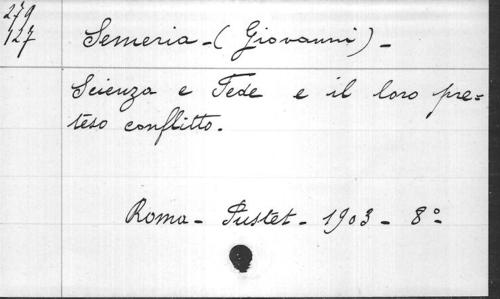 279
127
Semeria - (Giovanni) -
Scienza e Fede e il loro pre=
teso conflitto.
Roma - Pustet - 1903 - 8°-